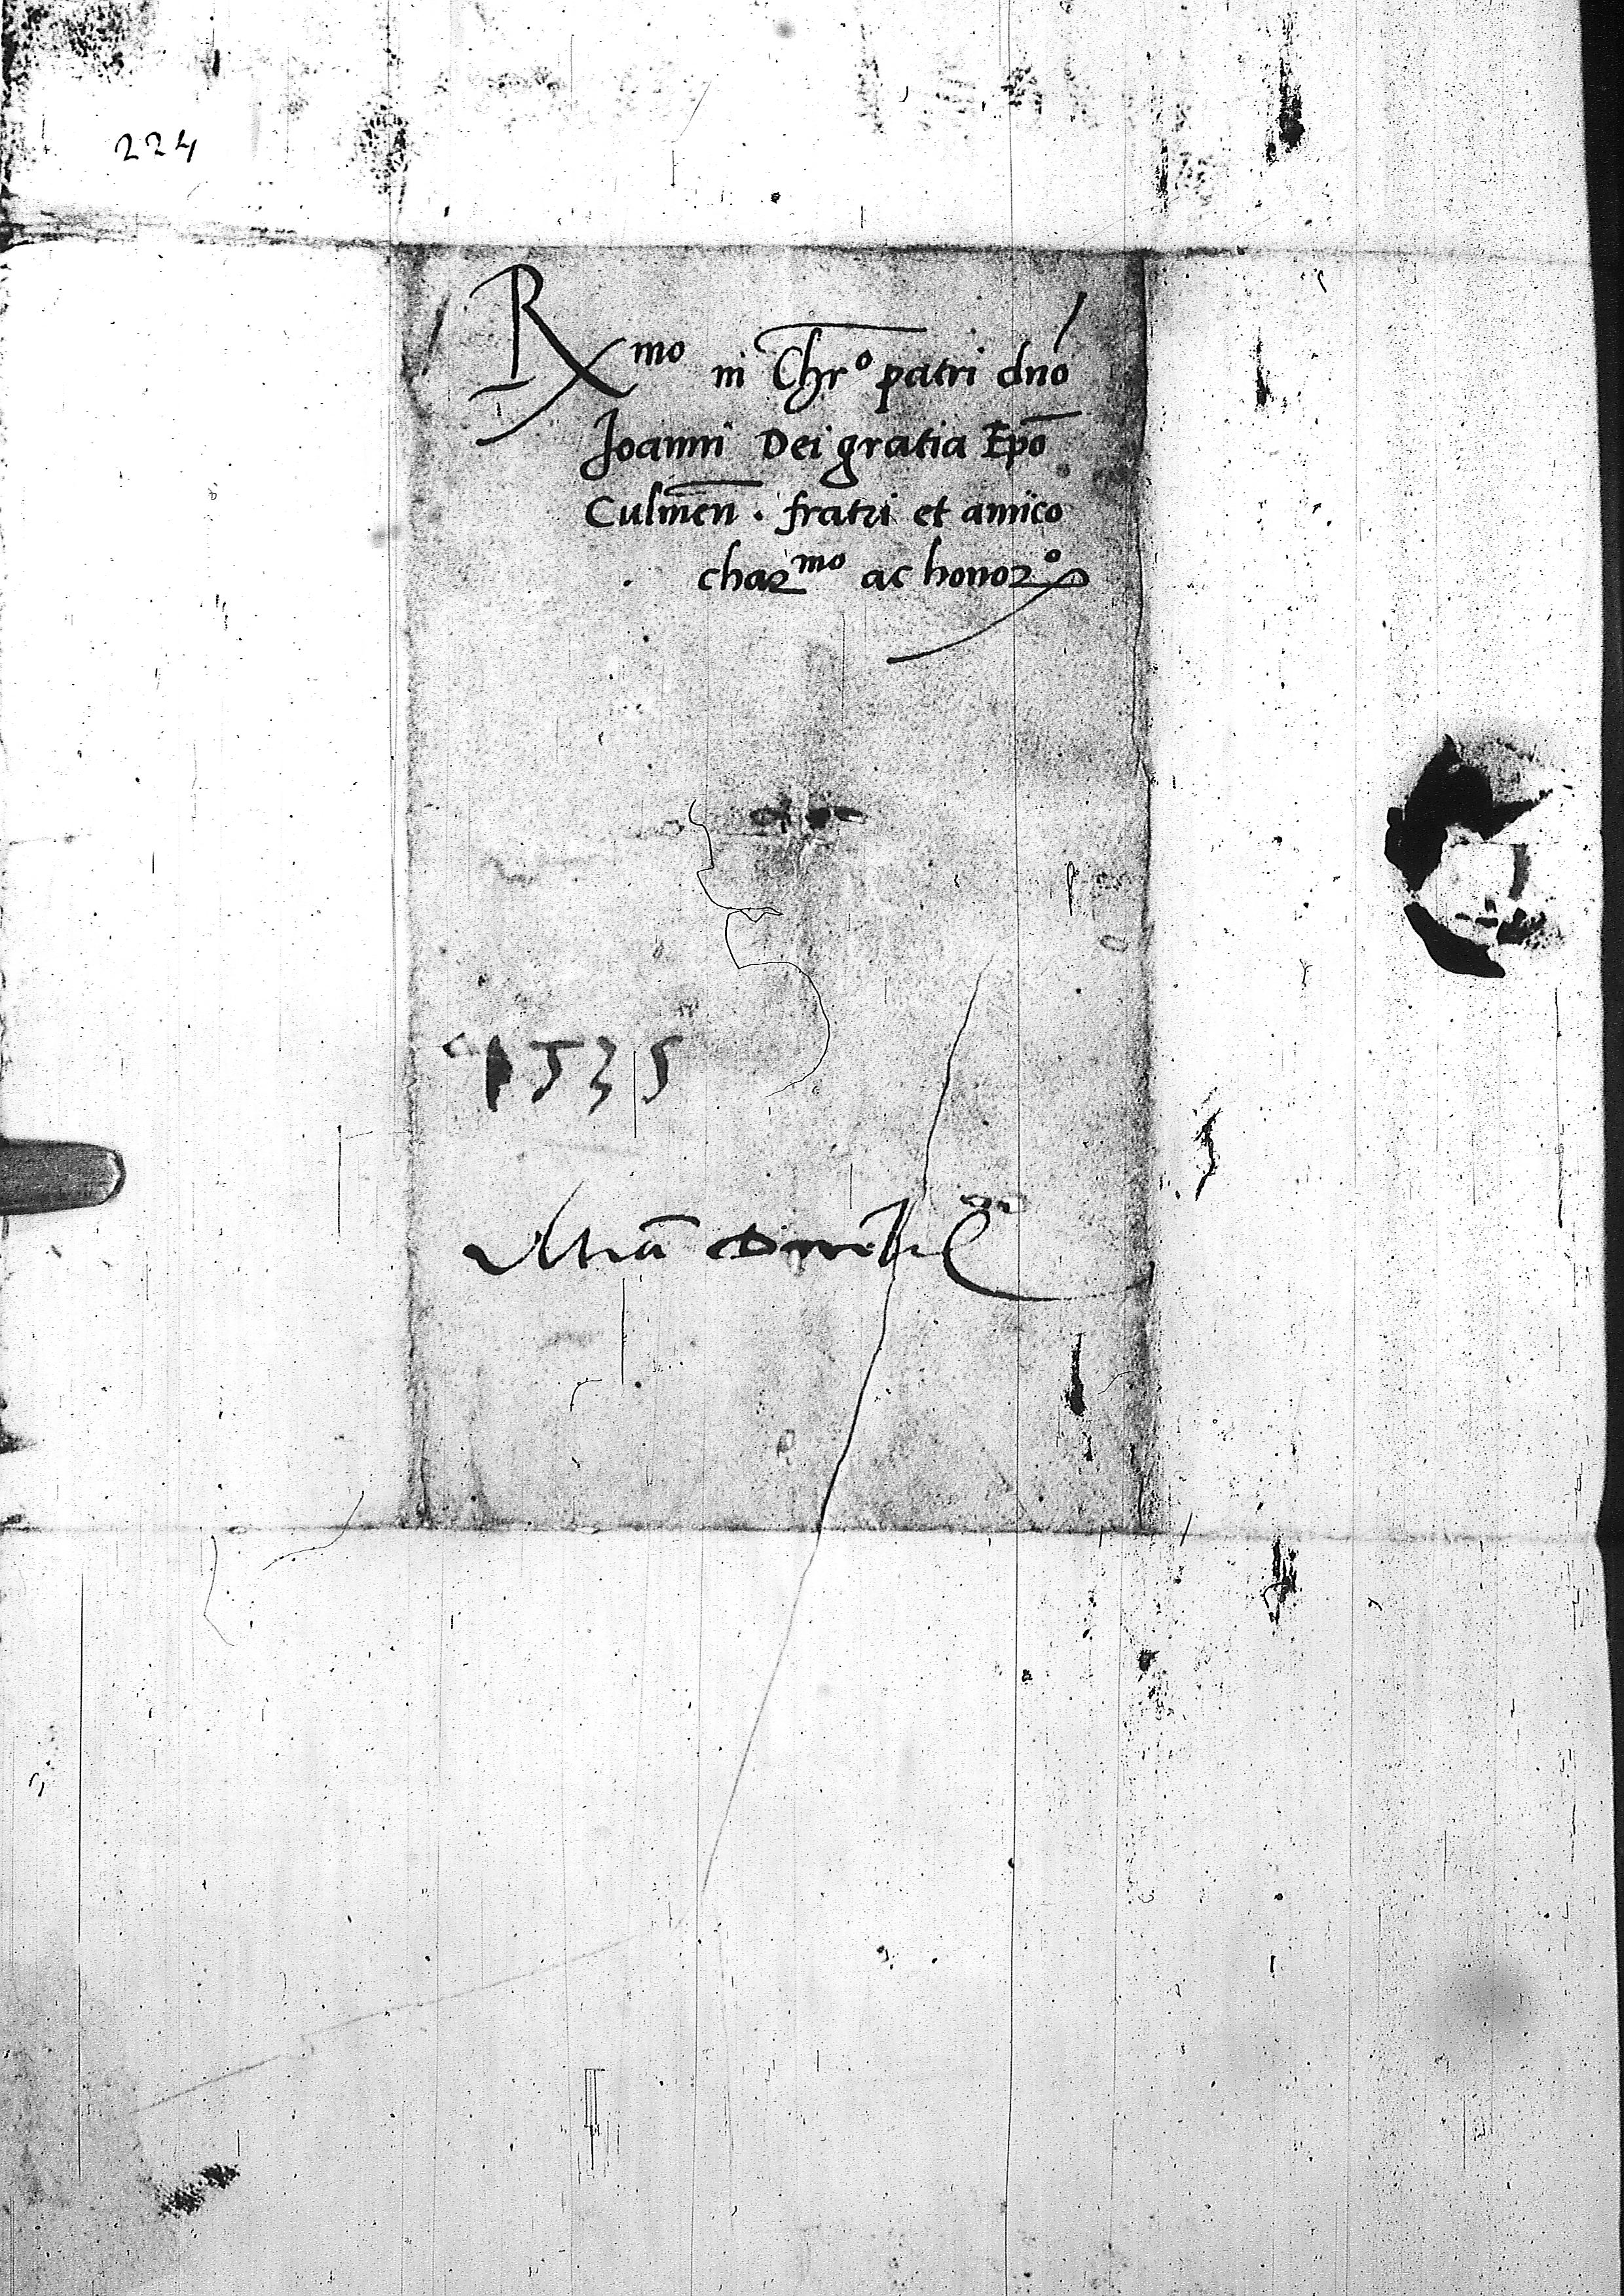 224
Rmo in Chro patri dno
Joanni Dei gratia Epo
Culmen. fratri et amico
charmo ac honor.o
1535